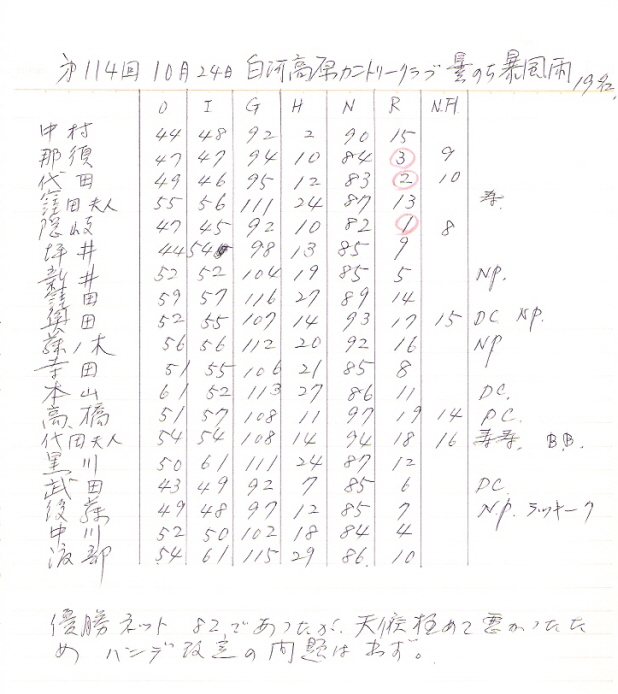 第114回 10月24日 白河高原カントリークラブ 曇のち暴風雨 19名
O I G H N R N.H.
中村 44 48 92 2 90 15
那須 47 47 94 10 84 3 9
代田 49 46 95 12 83 2 10
窪田夫人 55 56 111 24 87 13 寿
隠岐 47 45 92 10 82 1 8
坪井 44 54 98 13 85 9
新井 52 52 104 19 85 5 NP.
窪田 59 57 116 27 89 14
奥田 52 55 107 14 93 17 15 DC NP.
藤ノ木 56 56 112 20 92 16 NP
寺田 51 55 106 21 85 8
本山 61 52 113 27 86 11 DC.
高橋 51 57 108 11 97 19 14 DC.
代田夫人 54 54 108 14 94 18 16 寿寿 B.B.
黒川 50 61 111 24 87 12
武田 43 49 92 7 85 6 DC.
後藤 49 48 97 12 85 7 N.P. ラッキー7
中川 52 50 102 18 84 4
渡部 54 61 115 29 86 10
優勝ネット 82であったが、天候極めて悪かったた
め ハンデ改定の問題はあず。